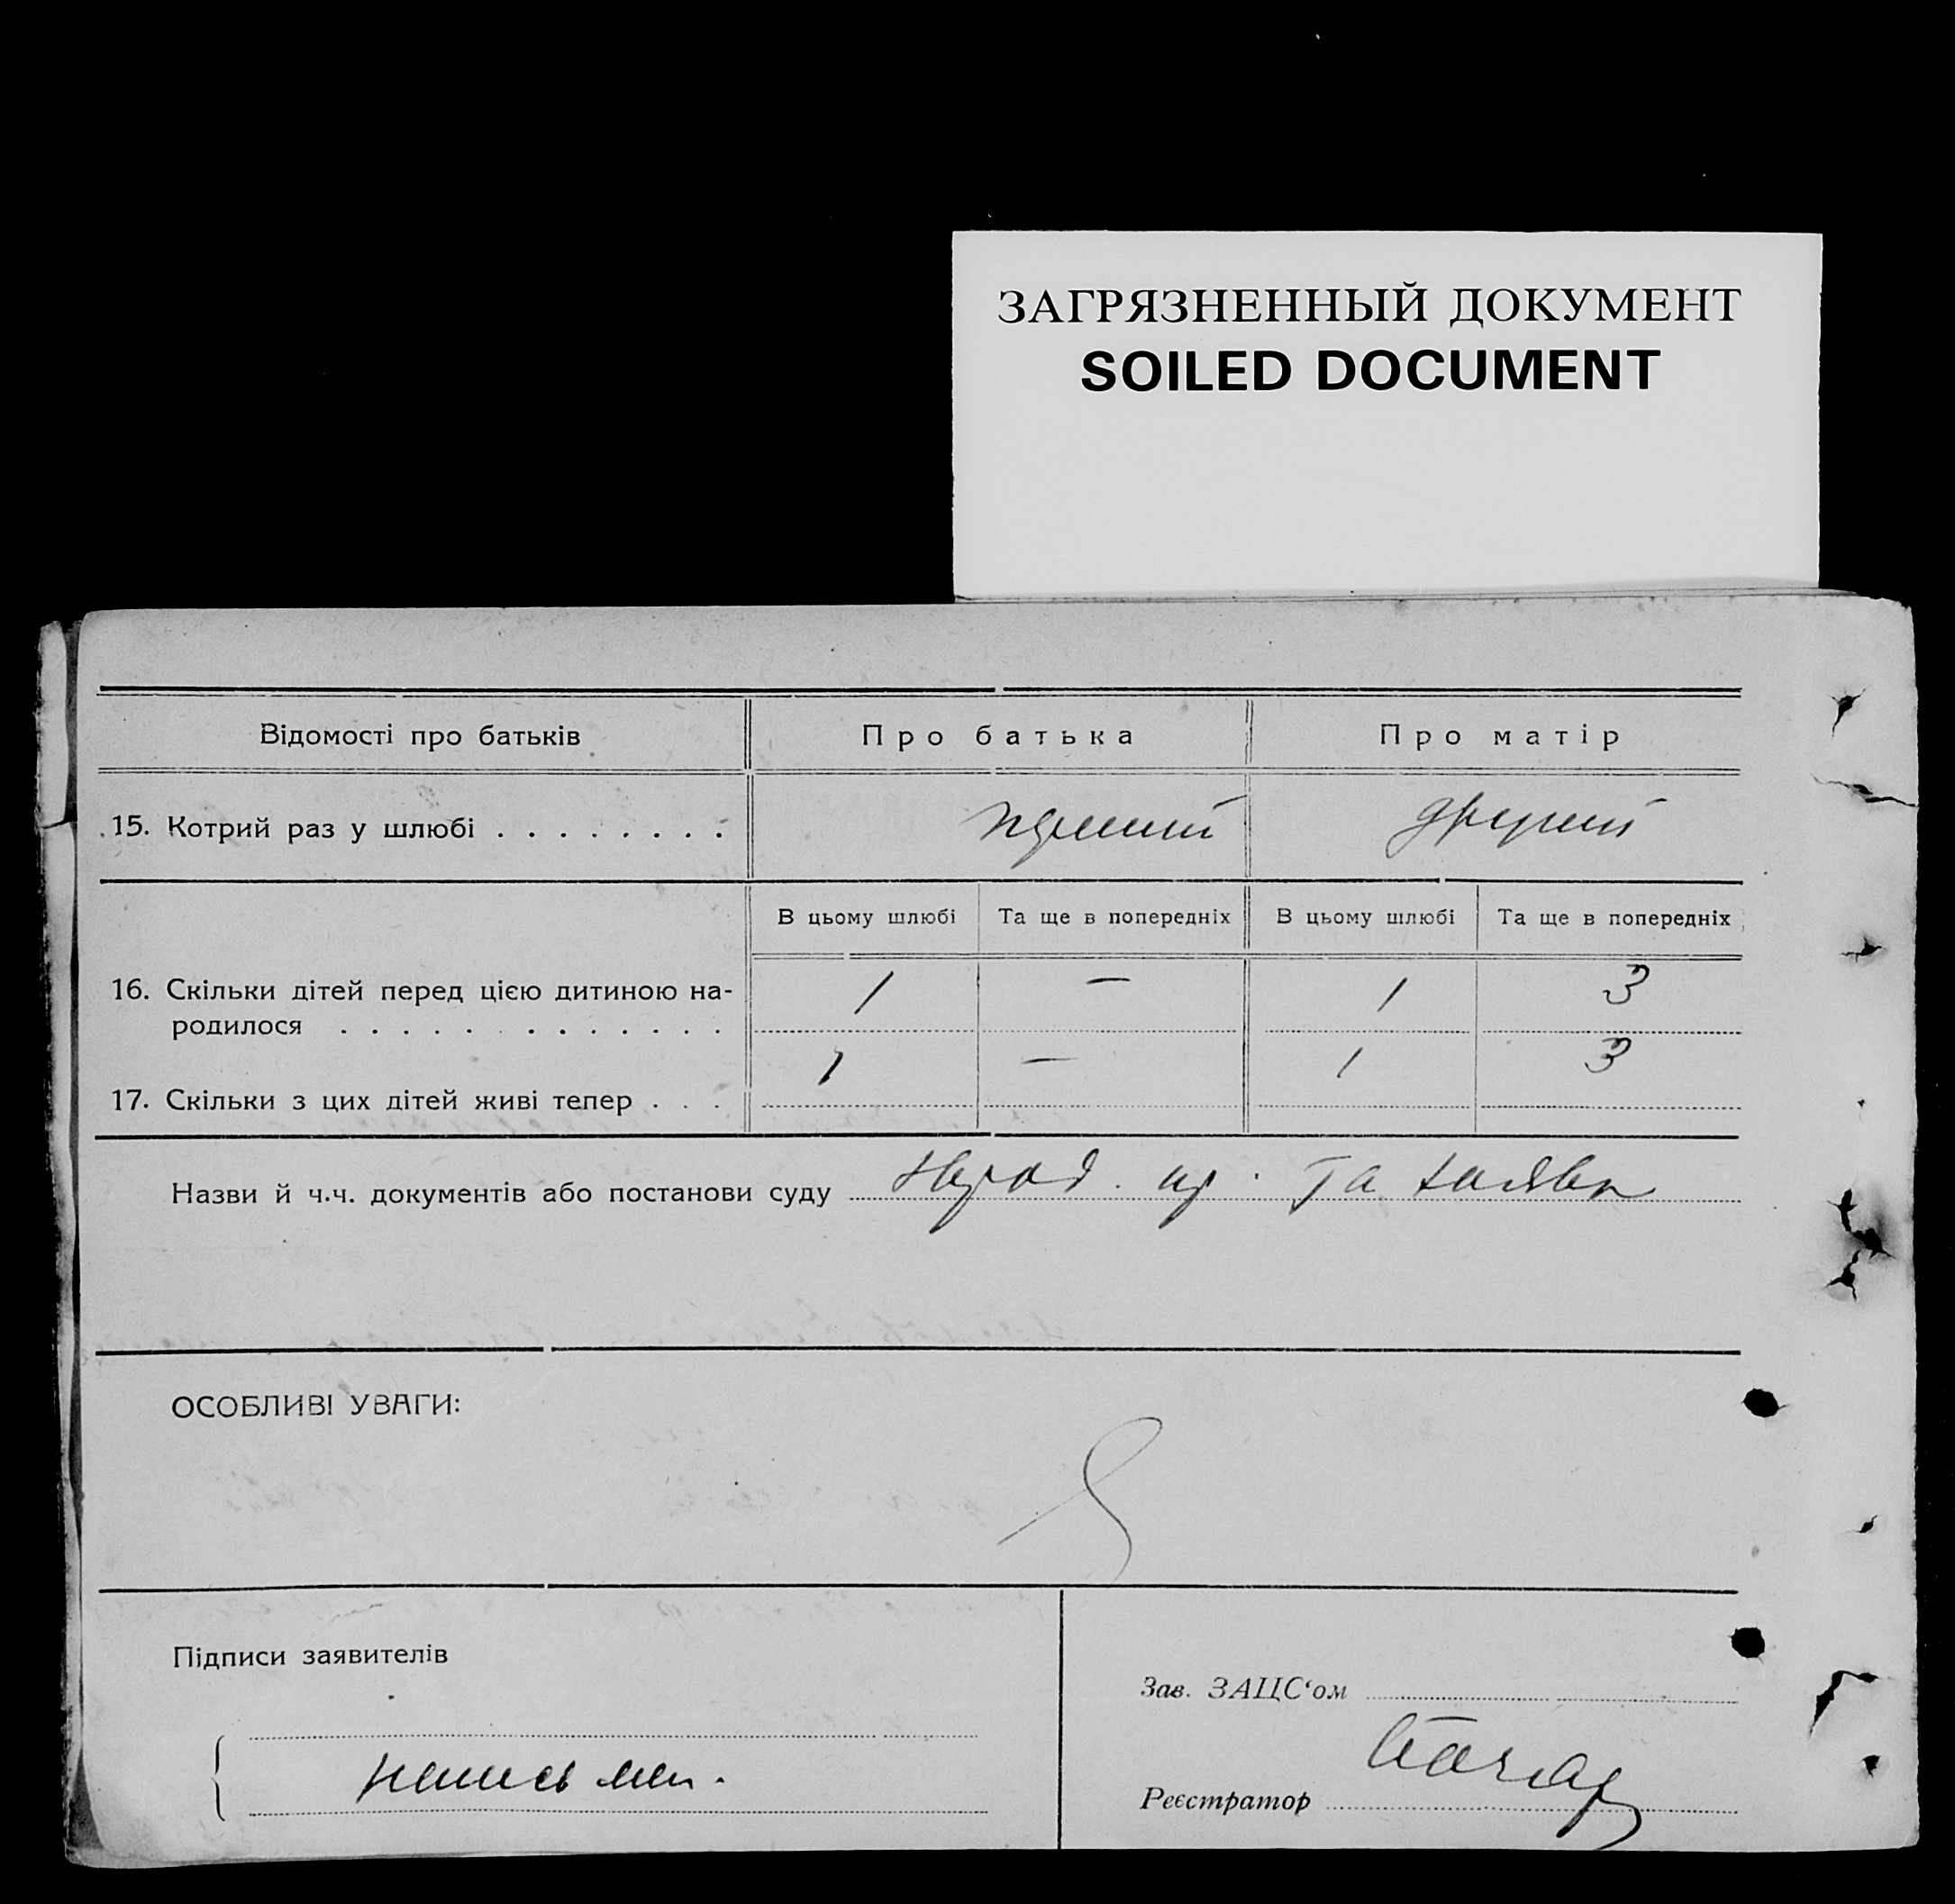 ЗАГРЯЗНЕННЫЙ ДОКУМЕНТ
SOILED DOCUMENT
Відомості про батьків Про батька Про матір
15. Котрий раз у шлюбі . . . . . . . . другий
В цьому шлюбі Та ще в попередніх В цьому шлюбі Та ще в попередніх
16. Скільки дітей перед цією дитиною на-
родилося . . . . . . . . . . . . . 1 — 1 3
17. Скільки з цих дітей живі тепер . . . 1 — 1 3
Назви й ч.ч. документів або постанови суду та заява
ОСОБЛИВІ УВАГИ:
Підписи заявителів
Зав. ЗАЦС‘ом
неписьмен.
Реєстратор